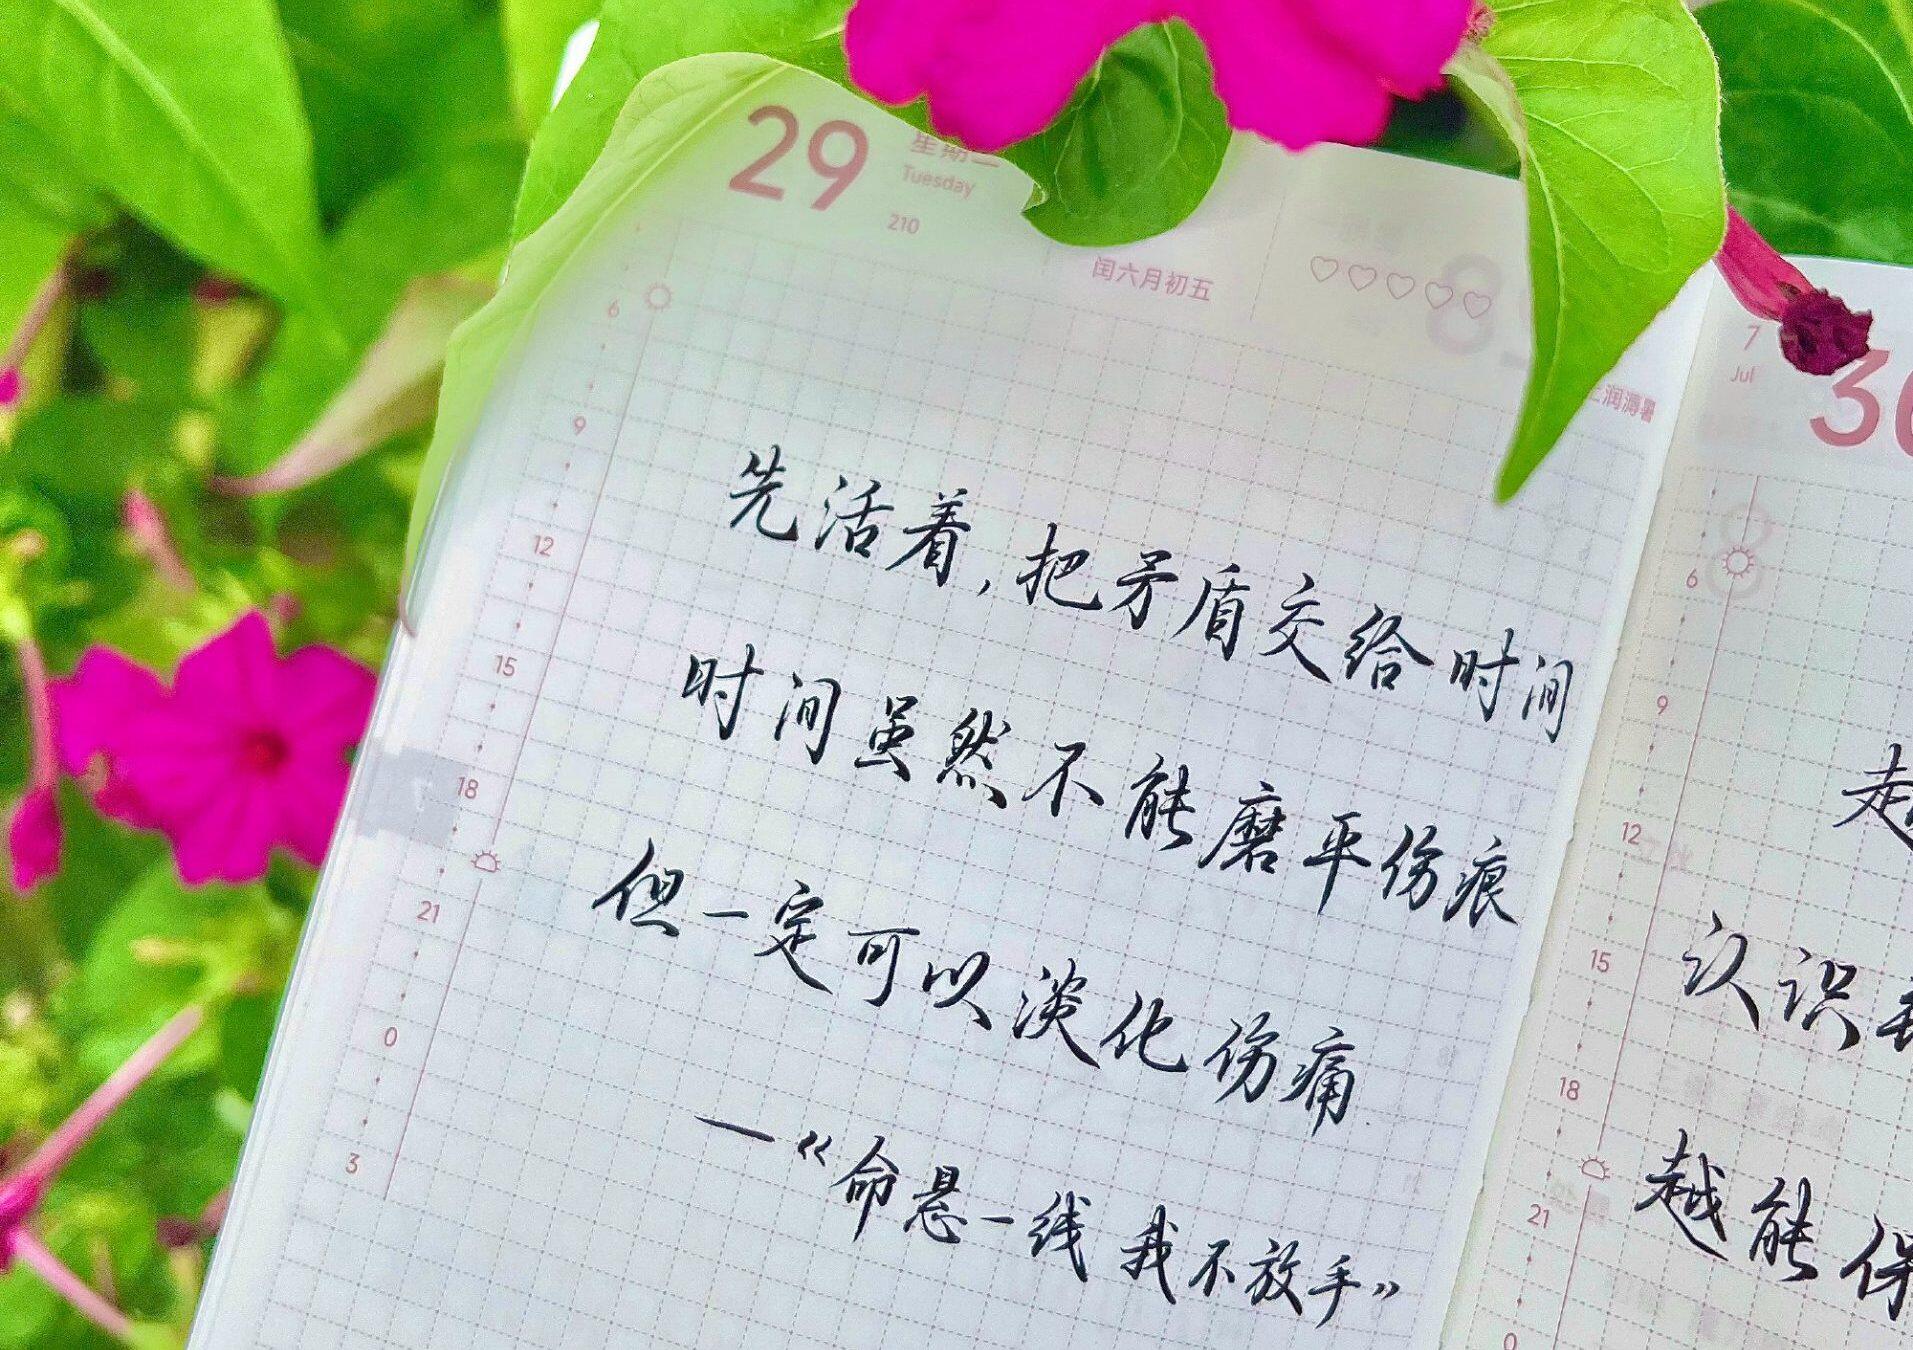 29
Tuesday
210
闰六月初五
♡♡♡♡♡
6
9
12
15
18
21
0
3
先活着,把矛盾交给时间
时间虽然不能磨平伤痕
但一定可以淡化伤痛
—《命悬一线 我不放手》
润溽暑
7
Jul
6
9
12
15
18
21
0
认识
越能保